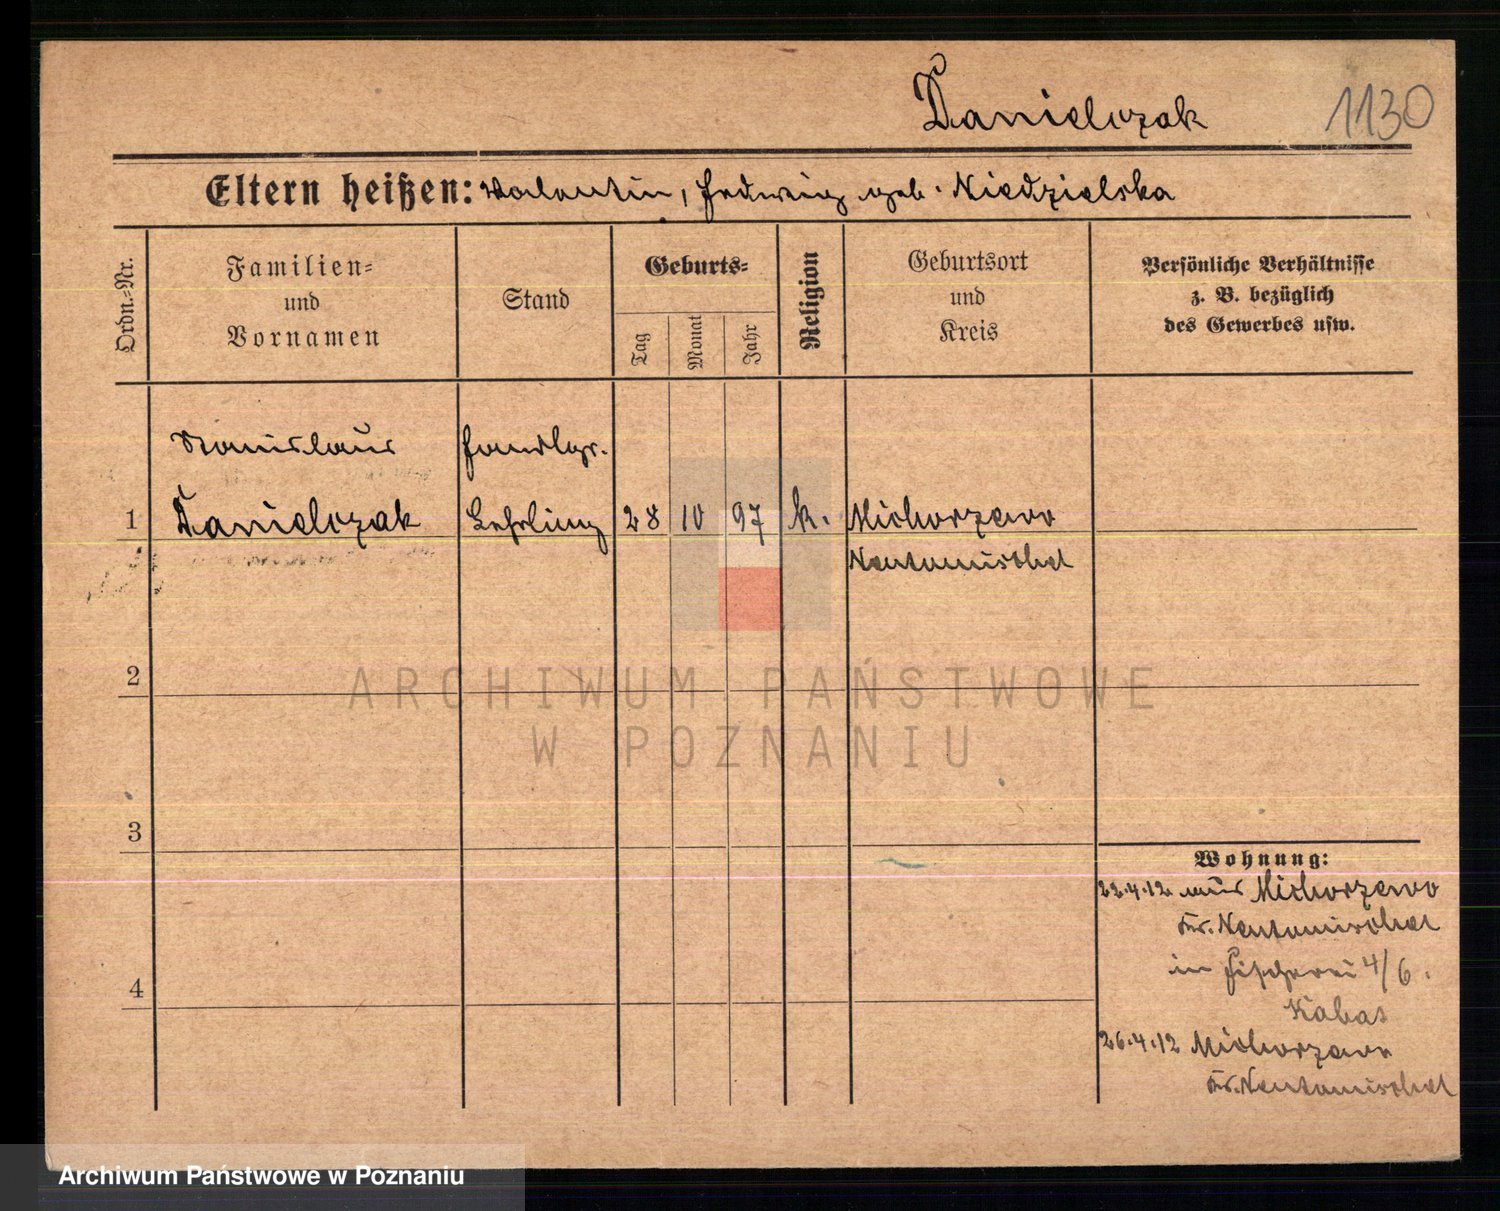 Danielczak 1130
Eltern heißen: Valentin, Hedwig geb. Niedzielska
Ordn.-Nr.
Familien-
und
Vornamen
Stand
Geburts-
Tag
Monat
Jahr
Religion
Geburtsort
und
Kreis
Persönliche Verhältnisse
z. B. bezüglich
des Gewerbes usw.
Stanislaus
1 Danielczak Lehrling 28 10 97 k. Michorzewo
Neutomischel
2
3
4
Wohnung:
22.4.12 aus Michorzewo
Kr. Neutomischel
in Fischerei 4/6.
Kabat
26.4.12 Michorzewo
Kr. Neutomischel
ARCHIWUM PAŃSTWOWE
W POZNANIU
Archiwum Państwowe w Poznaniu